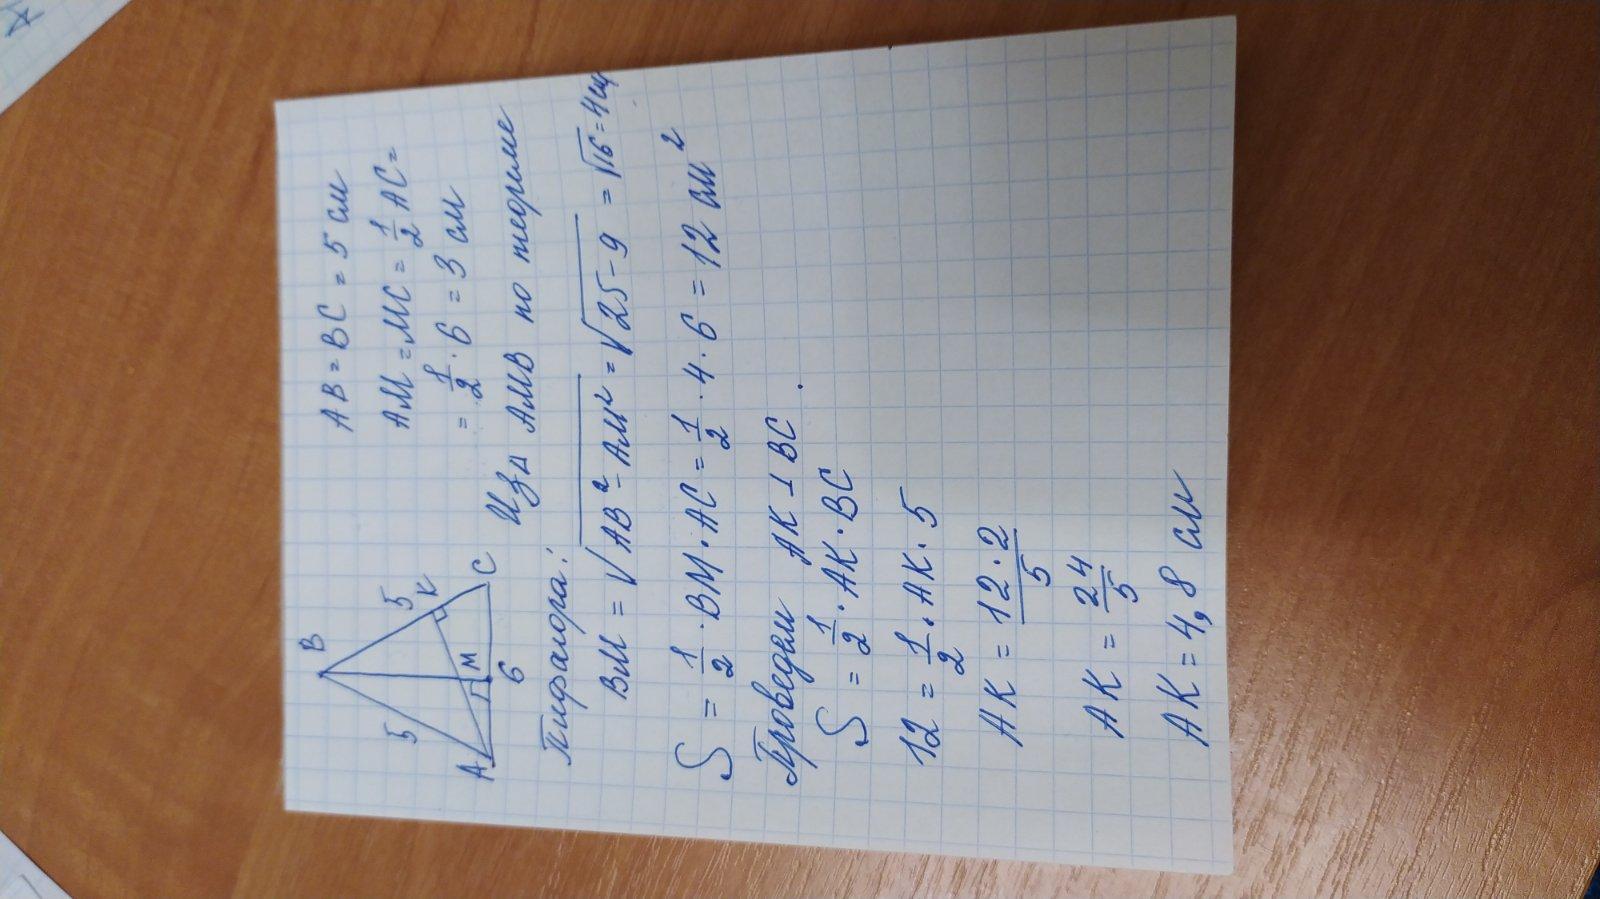 B
5
5
K
A
M
C
6
AB = BC = 5 см
AM = MC = 1/2 AC =
= 1/2 · 6 = 3 см
Из Δ AMB по теореме
Пифагора:
BM = √AB² - AM² = √25 - 9 = √16 = 4см
S = 1/2 · BM · AC = 1/2 · 4 · 6 = 12 см²
Проведем AK ⊥ BC
S = 1/2 · AK · BC
12 = 1/2 · AK · 5
AK = 12 · 2/5
AK = 24/5
AK = 4,8 см